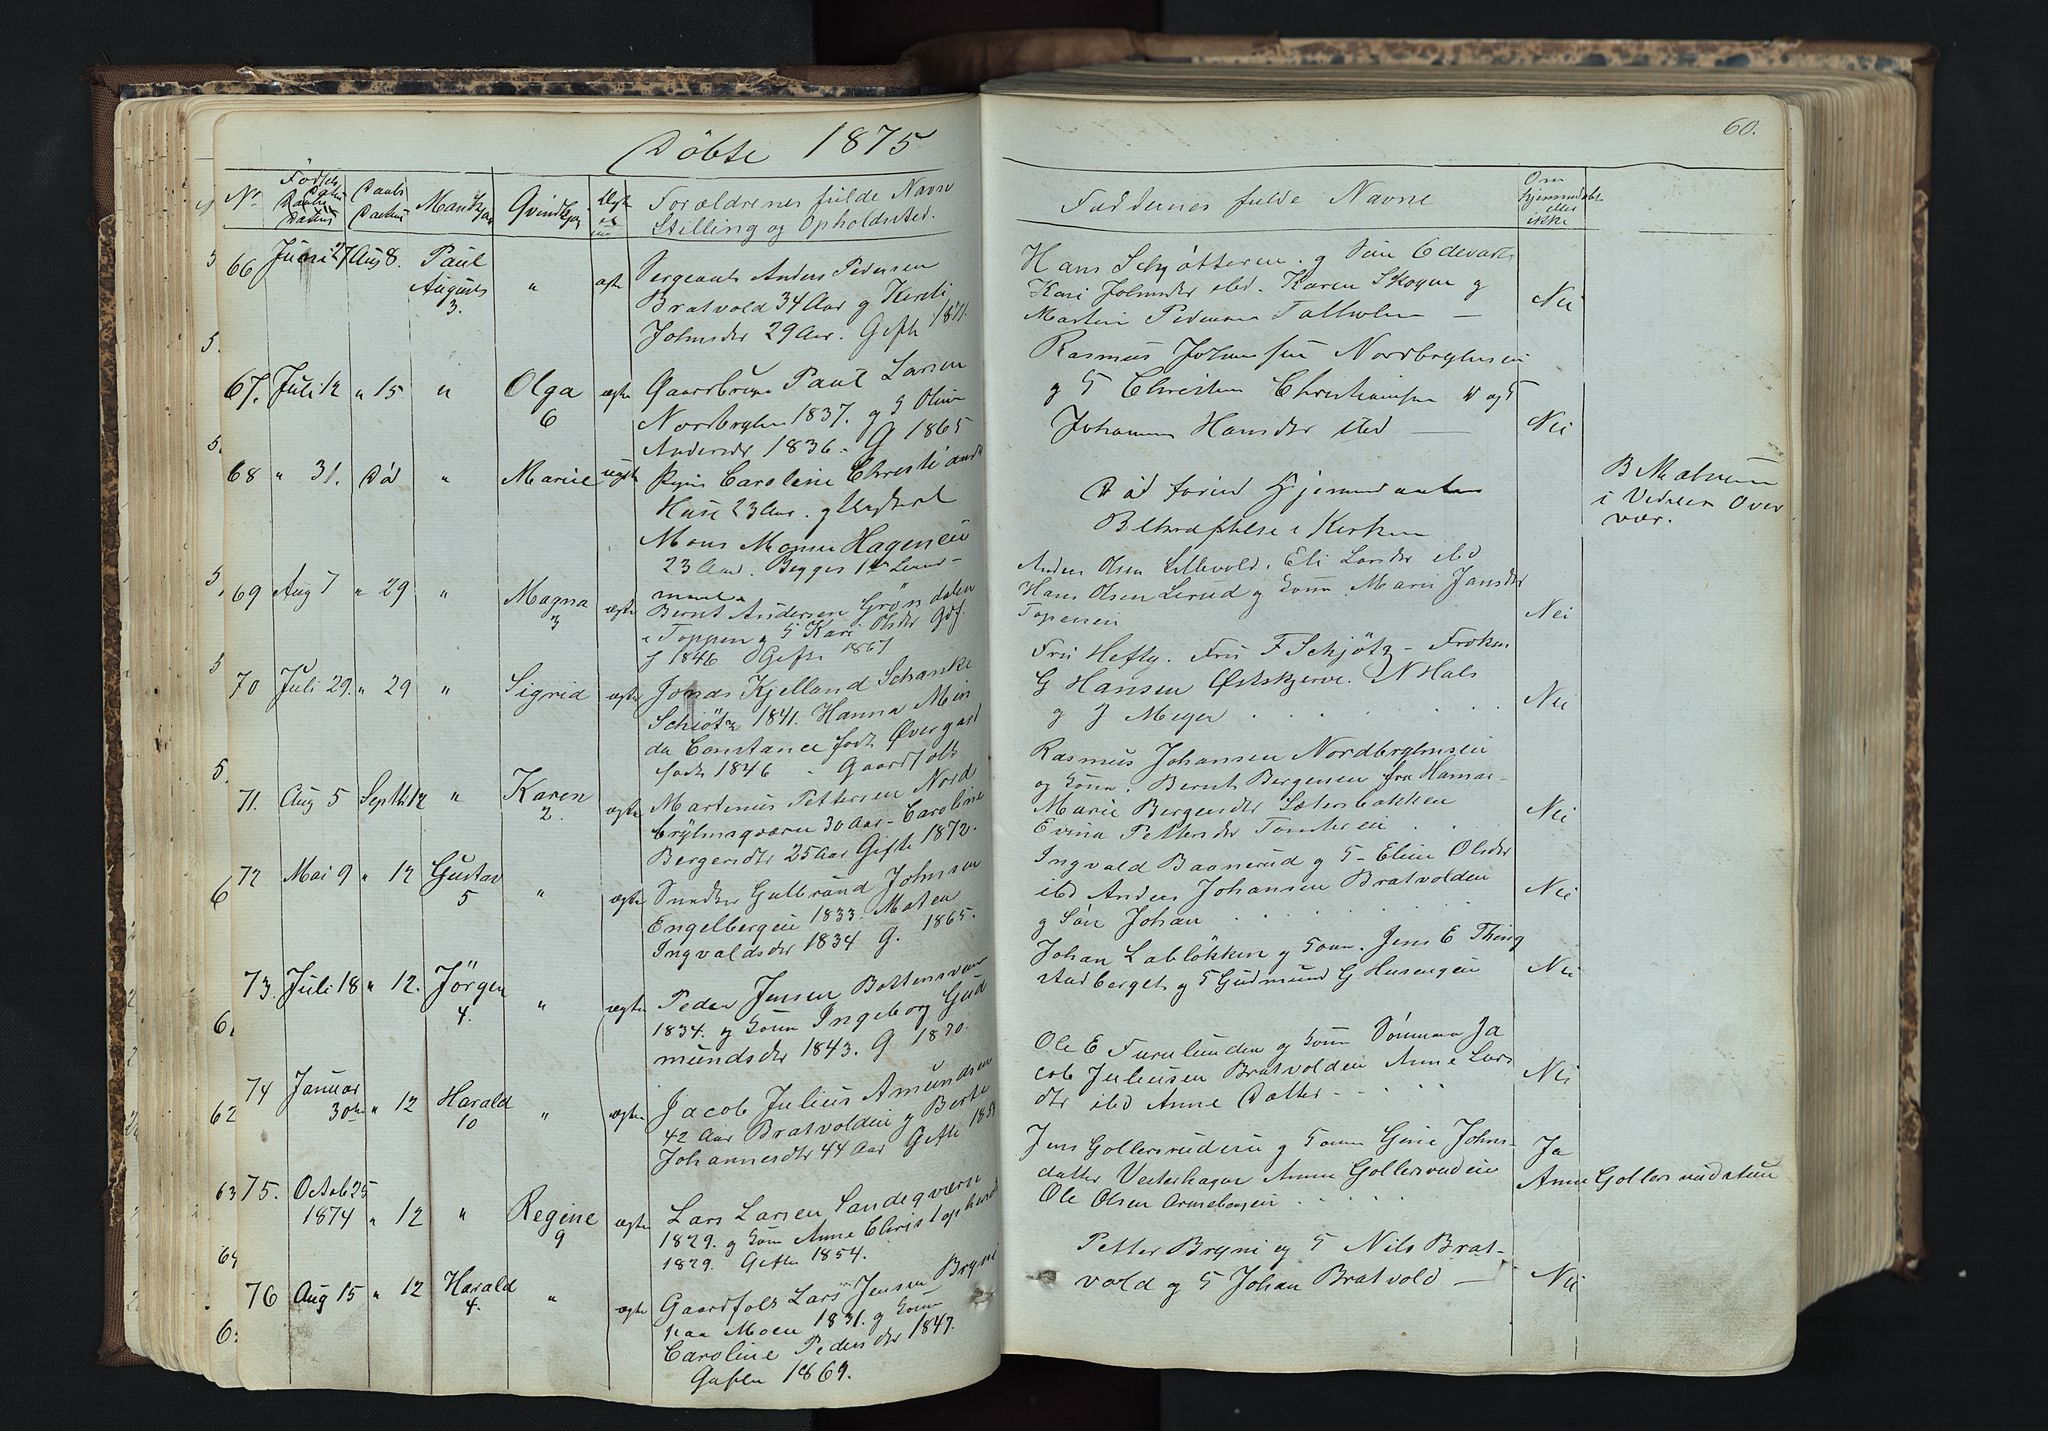 Døbte 1875
60.
No
Fødsels Datum
Daabs Datum
Mandkjøn
Qvindkjøn
Ægte el
Forældrenes fulde Navne
Stilling og Opholdsted.
Faddernes fulde Navne
Om hjemmedøbt eller ikke
66 Juni 27 Aug 8. Paul August 3. " ægte
Sergeant Anders Pedersen
Bratvold 34 Aar og Kersti
Johnsdr 29 Aar. Gift 1871.
Hans Schjøtteren og Søn Edevart
Kari Johnsdr ibd. Karen Skogen og
Martin Pedersen Tallholen —
Nei
67. Juli 12 " 15 " Olga 6 ægte
Gaardbruger Paul Larsen
Nordbryhn 1837. og H Oline
Andersdr 1836. G 1865
Rasmus Johansen Nordbryhnseie
og H Christen Christiansen
Johanne Hansdr ibd —
Nei
68 " 31. Død " Marie uægte
Pigen Caroline Christiansdr
Huse 23 Aar. og Ungkarl
Mons Monsen Hageneie
23 Aar. Begges 1st Leier-
maal.
Død forud Hjemmedaabens
Bekræftelse i Kirken
B Mælum
i Vidners Over
vær.
69 Aug 7 " 29 " Magna 3 ægte
Bernt Andersen Grøndalen
i Toppen og H Kari Olsdr Gdf.
f 1846 Gift 1867
Anders Olsen Lillevold. Eli Larsdr ibd
Hans Olsen Lerud og Kone Marie Jansdr
Topenen
Nei
70 Juli 29. " 29 " Sigrid ægte
Jonas Kjelland Schanke
Schiötz 1841. Hanna Min
da Constance født Øvergaard
født 1846
Fru Hefty. Fru F Schjötz - Frøken
G Hansen Østskjerve. N Hals
og J Meyer . . . . .
Nei
71. Aug 5 Septb 12 " Karen 2. ægte
Gaardfolk
Martinus Pettersen Nord
bryhnsqværn 30 Aar - Caroline
Bergersdtr 25 Aar Gifte 1872.
Rasmus Johansen Nordbryhnseie
og Kone. Bernt Bergersen fra Hamar -
Marie Bergersdtr Sæterbakken
Evina Pettersdr Tomtereie . .
Nei
72 Mai 9 " 12 Gustav 5 " ægte
Snedker Gulbrand Johnsen
Engelbergeie 1833. Maren
Ingvaldsdr 1834 G. 1865.
Ingvald Baanerud og H - Eline Olsdr
ibd Anders Johansen Bratvolden
og Søn Johan . . . . .
Nei
73. Juli 18 " 12. Jörgen 4. " ægte
Peder Jensen
1834. og Kone Ingeborg Gud
mundsdr 1843. G 1870.
Johan Labløkken og Kone. Jens E Thing
stadberget og H Gudmund G Husengeie
Nei
74 Januar 30te " 12 Harald 10 " ægte
Jacob Julius Amundsen
42 Aar Bratvolden og Berte
Johannesdtr 44 Aar Gifte 1854
Ole E Furulunden og Kone Ja
cob Juliusen Bratvolden Anne Lars
dtr ibd Anne Datter . . . .
Nei
75. Octob 25 1874 " 12 " Regine 9 ægte
Lars Larsen Sandeqværn
1829. og Kone Anne Christophersdr
1829. Gifte 1854.
Jens Gollersrudeie og Kone Gine Johns-
datter Vesterhagen Anne Gollersrudeie
Ole Olsen . . . . .
Ja
Anne Gollersrudstuen
76 Aug 15 " 12 Harald 4. " ægte
Gaardfolk Lars Jensen Bryni
paa Moen 1831. og Kone
Caroline Pedersdtr 1847.
Gifte 1869.
Petter Bryni og H Nils Brat-
vold og H Johan Bratvold —
Nei